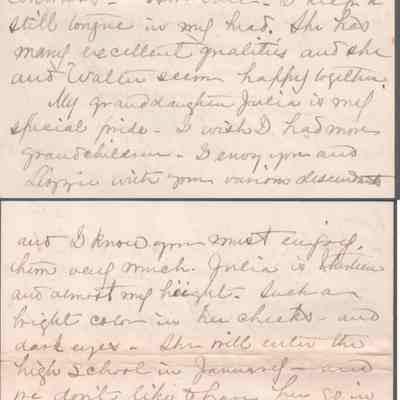 still tongue in my head. She has
many excellent qualities and she
and Walter seem happy together.
My granddaughter Julia is my
special pride - I wish I had more
grandchildren - I envy you and
Lizzie with your various descendants
and I know you must enjoy
them very much. Julia is thirteen
and almost my height. Such a
bright color in her cheeks - and
dark eyes - She will enter the
high school in January - and
we don't like to have her go in